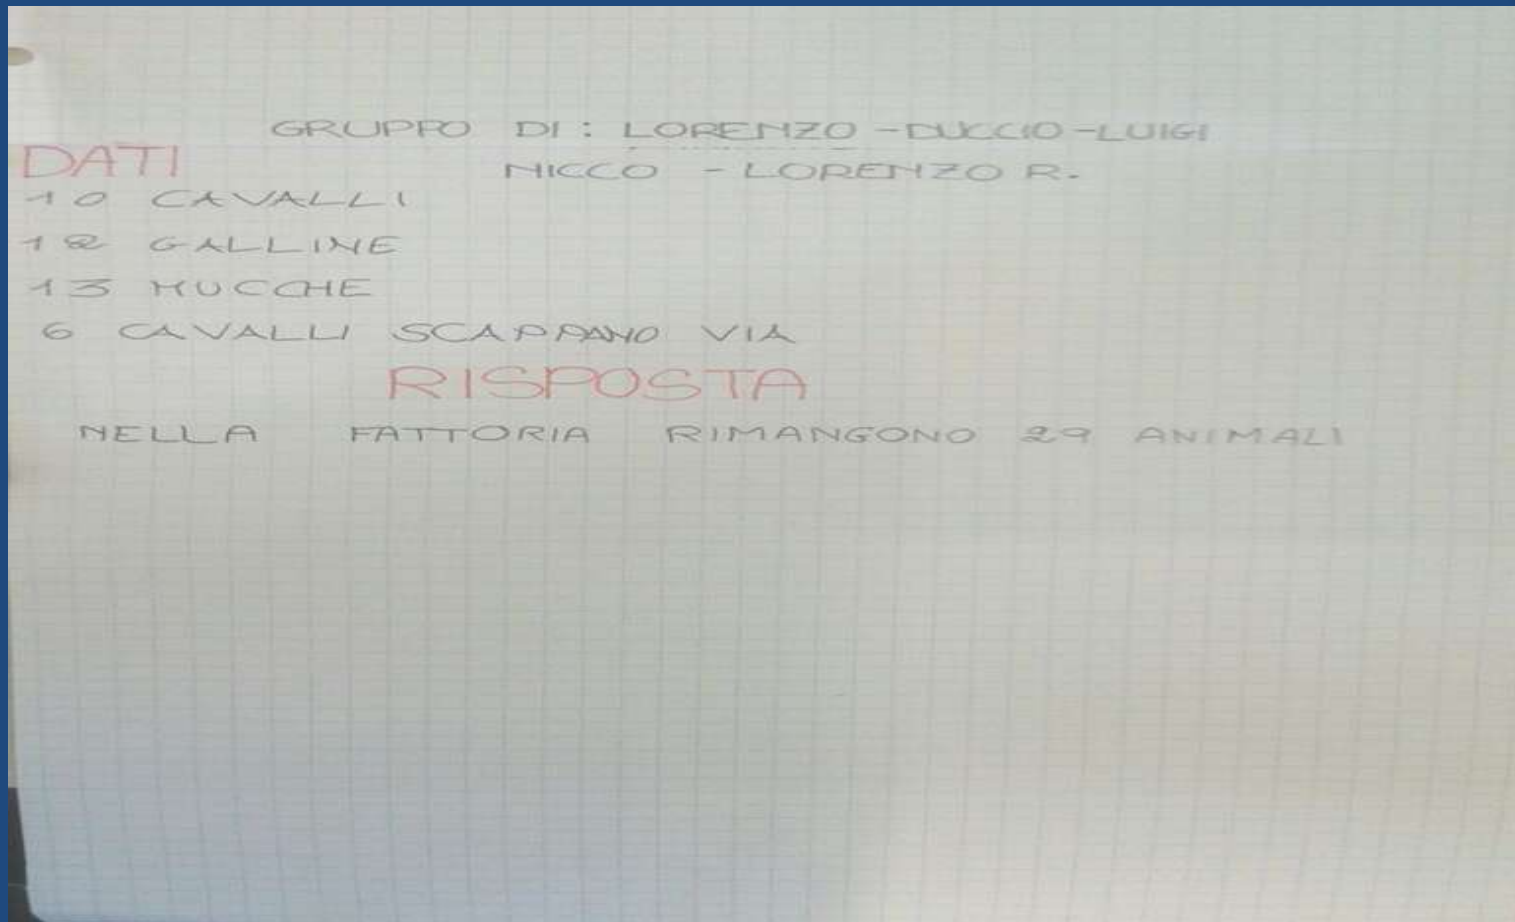 GRUPPO DI: LORENZO - DUCCIO - LUIGI
NICCO - LORENZO R.
DATI
10 CAVALLI
12 GALLINE
13 MUCCHE
6 CAVALLI SCAPPANO VIA
RISPOSTA
NELLA FATTORIA RIMANGONO 29 ANIMALI